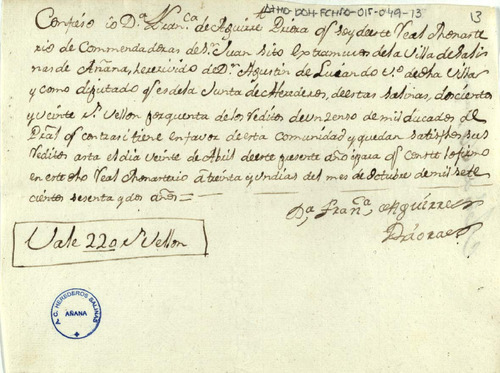 AHAD-DOH-FCHSD-015-049-13
13
Confieso io Dª Franca de Aguirre Priora q soy de este Real Monaste
rio de Commendadoras de Sn Juan sito extramuros de la Villa de Sali
nas de Añana, he recivido de Dn Agustin de Luiando Vº de dha Villa
y como diputado q es de la Junta de Herederos, de estas Salinas, doscientos
y veinte rs Vellon por quenta de los reditos de un zenso de mil ducados de
Pral q contra si tiene en favor de esta Comunidad y quedan satisfhos sus
reditos asta el dia veinte de Abril de este presente año i para q conste lo firmo
en este dho Real Monasterio a treinta y un dias del mes de Octubre de mil sete
cientos sesenta y dos años
Da Franca Aguirre
Priora
Vale 220 rs Vellon
A.C. HEREDEROS SALINAS
AÑANA